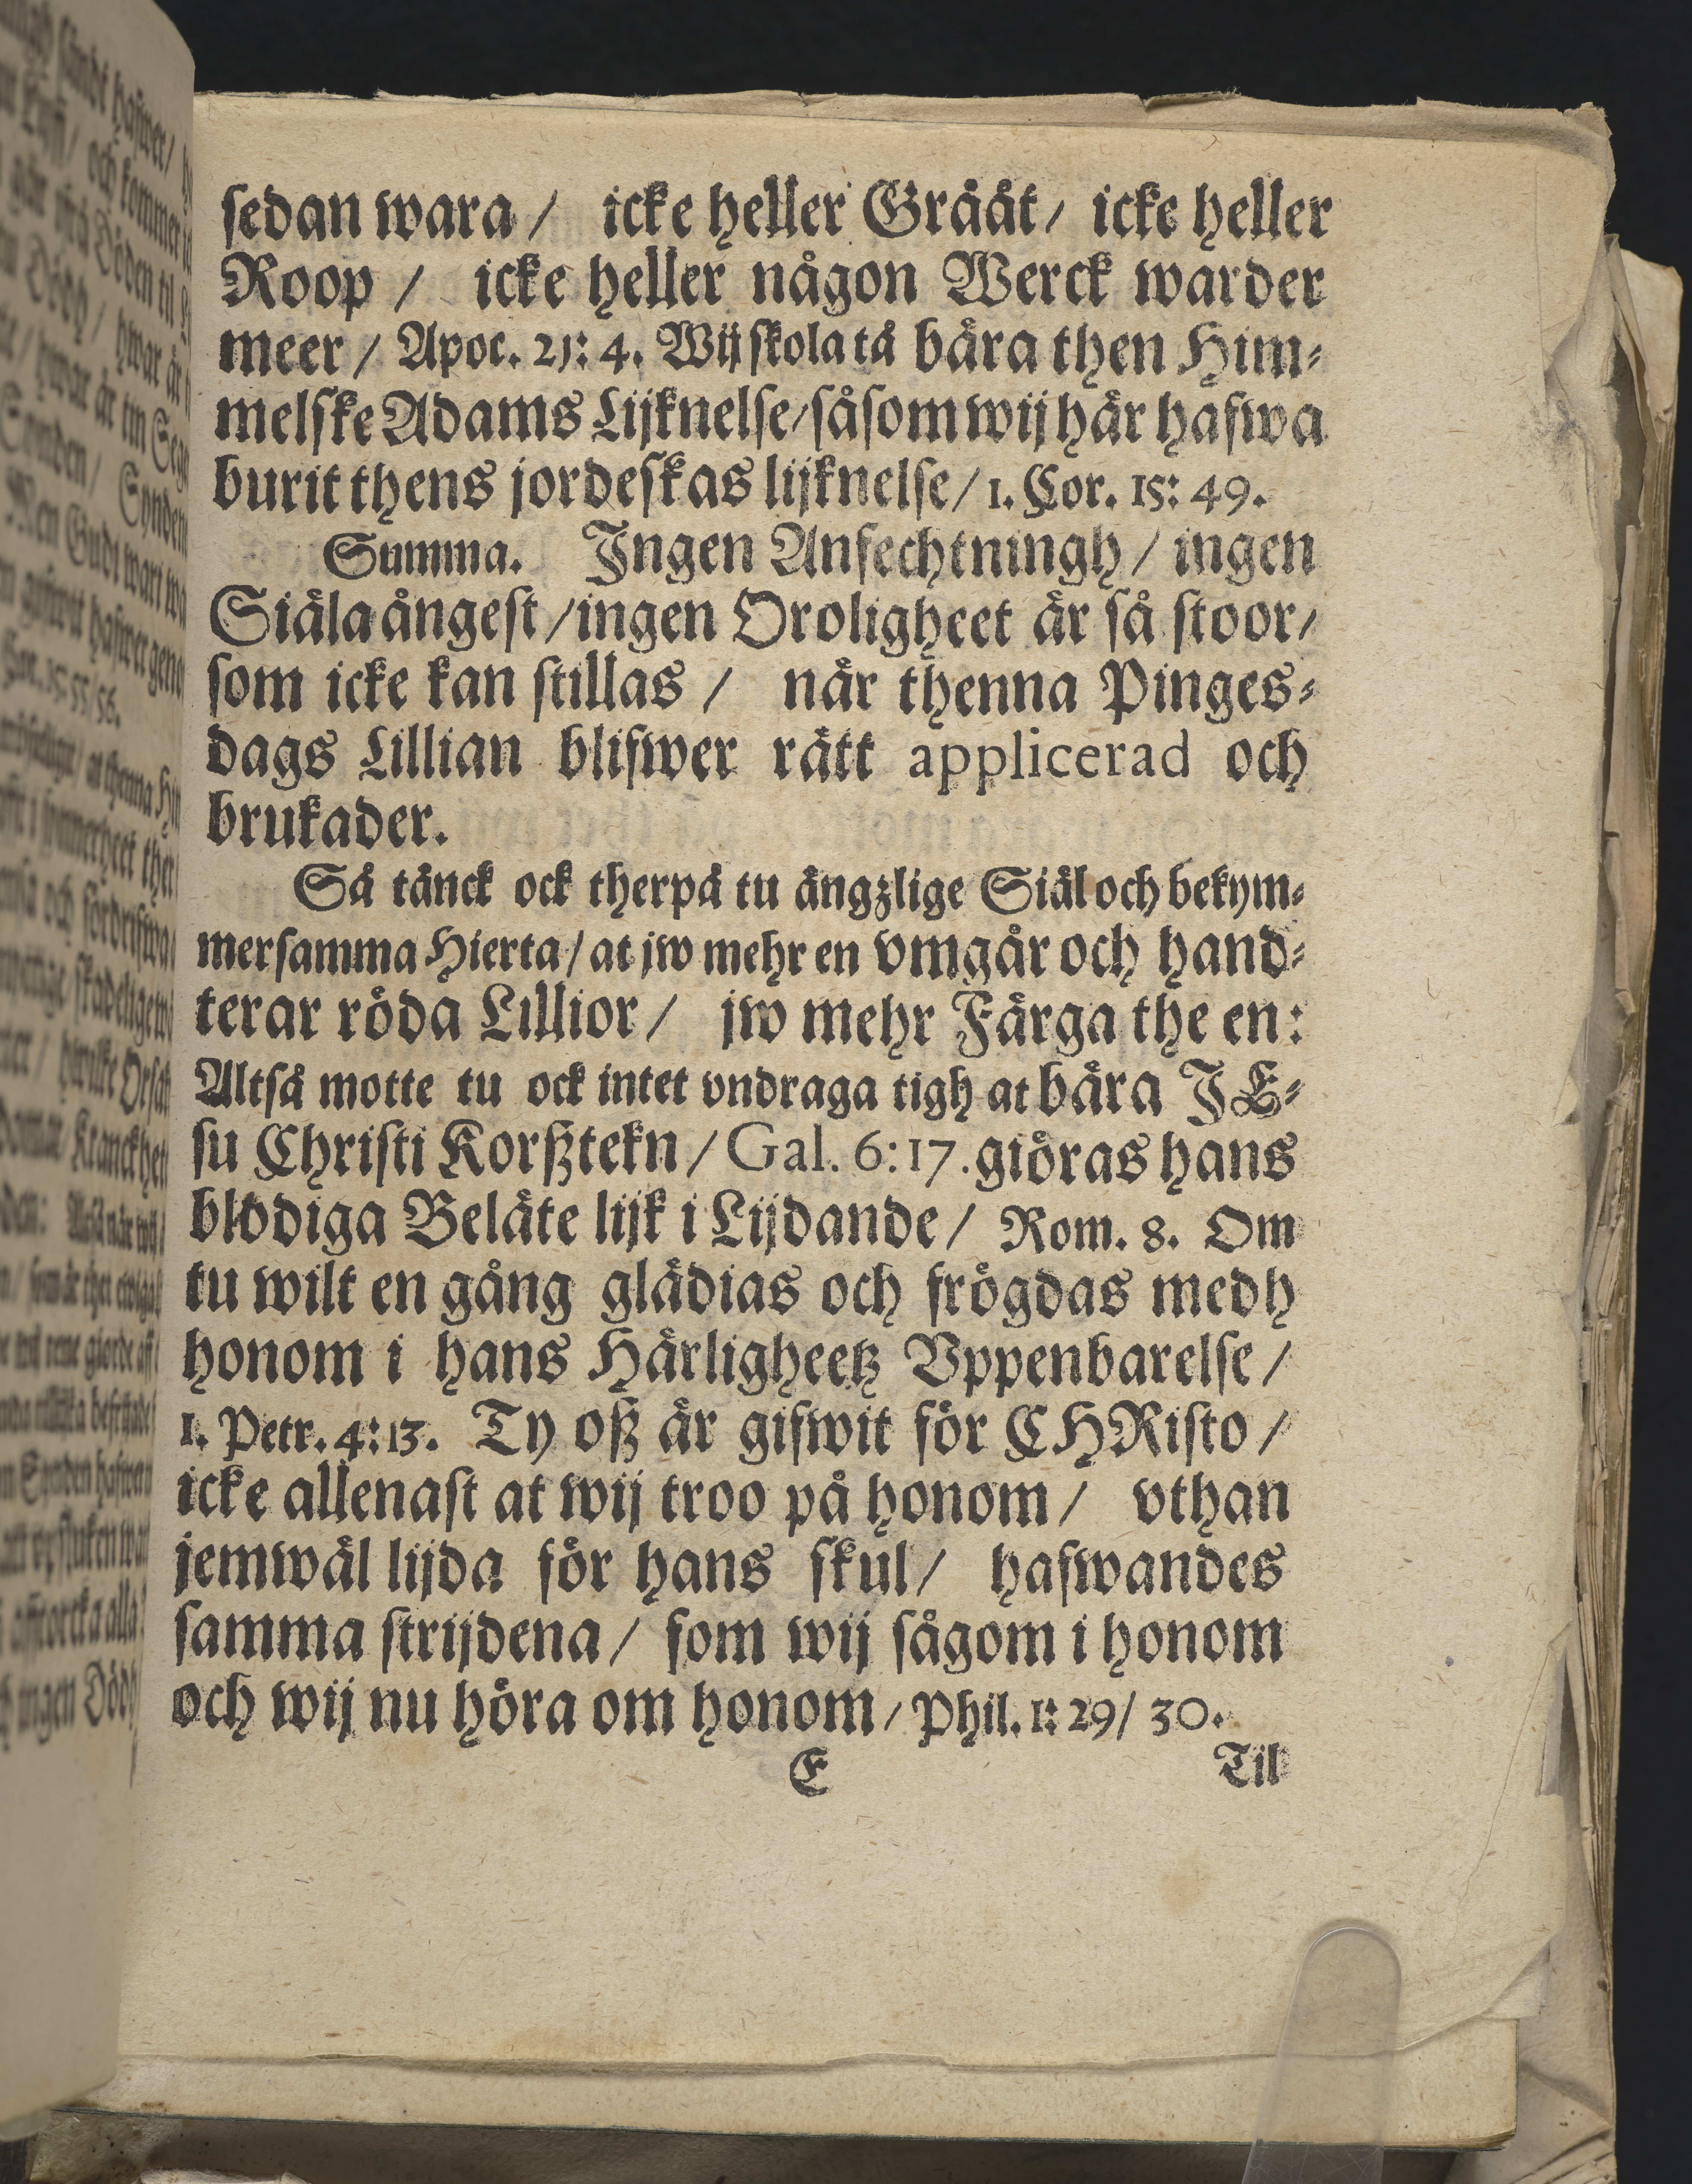 sedan wara / icke heller Grååt / icke heller
Roop / icke heller någon Werck warder
meer / Apoc. 21: 4. Wij skola tå bära then Him-
melske Adams Lijknelse / såsom wij här hafwa
burit thens jordeskas lijknelse / 1. Cor. 15: 49.
Summa. Ingen Anfechtningh / ingen
Siäla ångest / ingen Oroligheet är så stoor /
som icke kan stillas / när thenna Pinges-
dags Lillian blifwer rätt applicerad och
brukader.
Så tänck ock therpå tu ängzlige Siäl och bekym-
mersamma Hierta / at jw mehr en vmgår och hand-
terar röda Lillior / jw mehr Färga the en:
Altså motte tu ock intet vndraga tigh at bära JE-
su Christi Korßztekn / Gal. 6:17. giöras hans
blodiga Beläte lijk i Lijdande / Rom. 8. Om
tu wilt en gång glädias och frögdas medh
honom i hans Härligheetz Vppenbarelse /
1. Petr. 4:13. Ty oß är gifwit för CHRisto /
icke allenast at wij troo på honom / vthan
jemwäl lijda för hans skul / hafwandes
samma strijdena / som wij sågom i honom
och wij nu höra om honom / Phil. 1: 29/ 30.
E Til